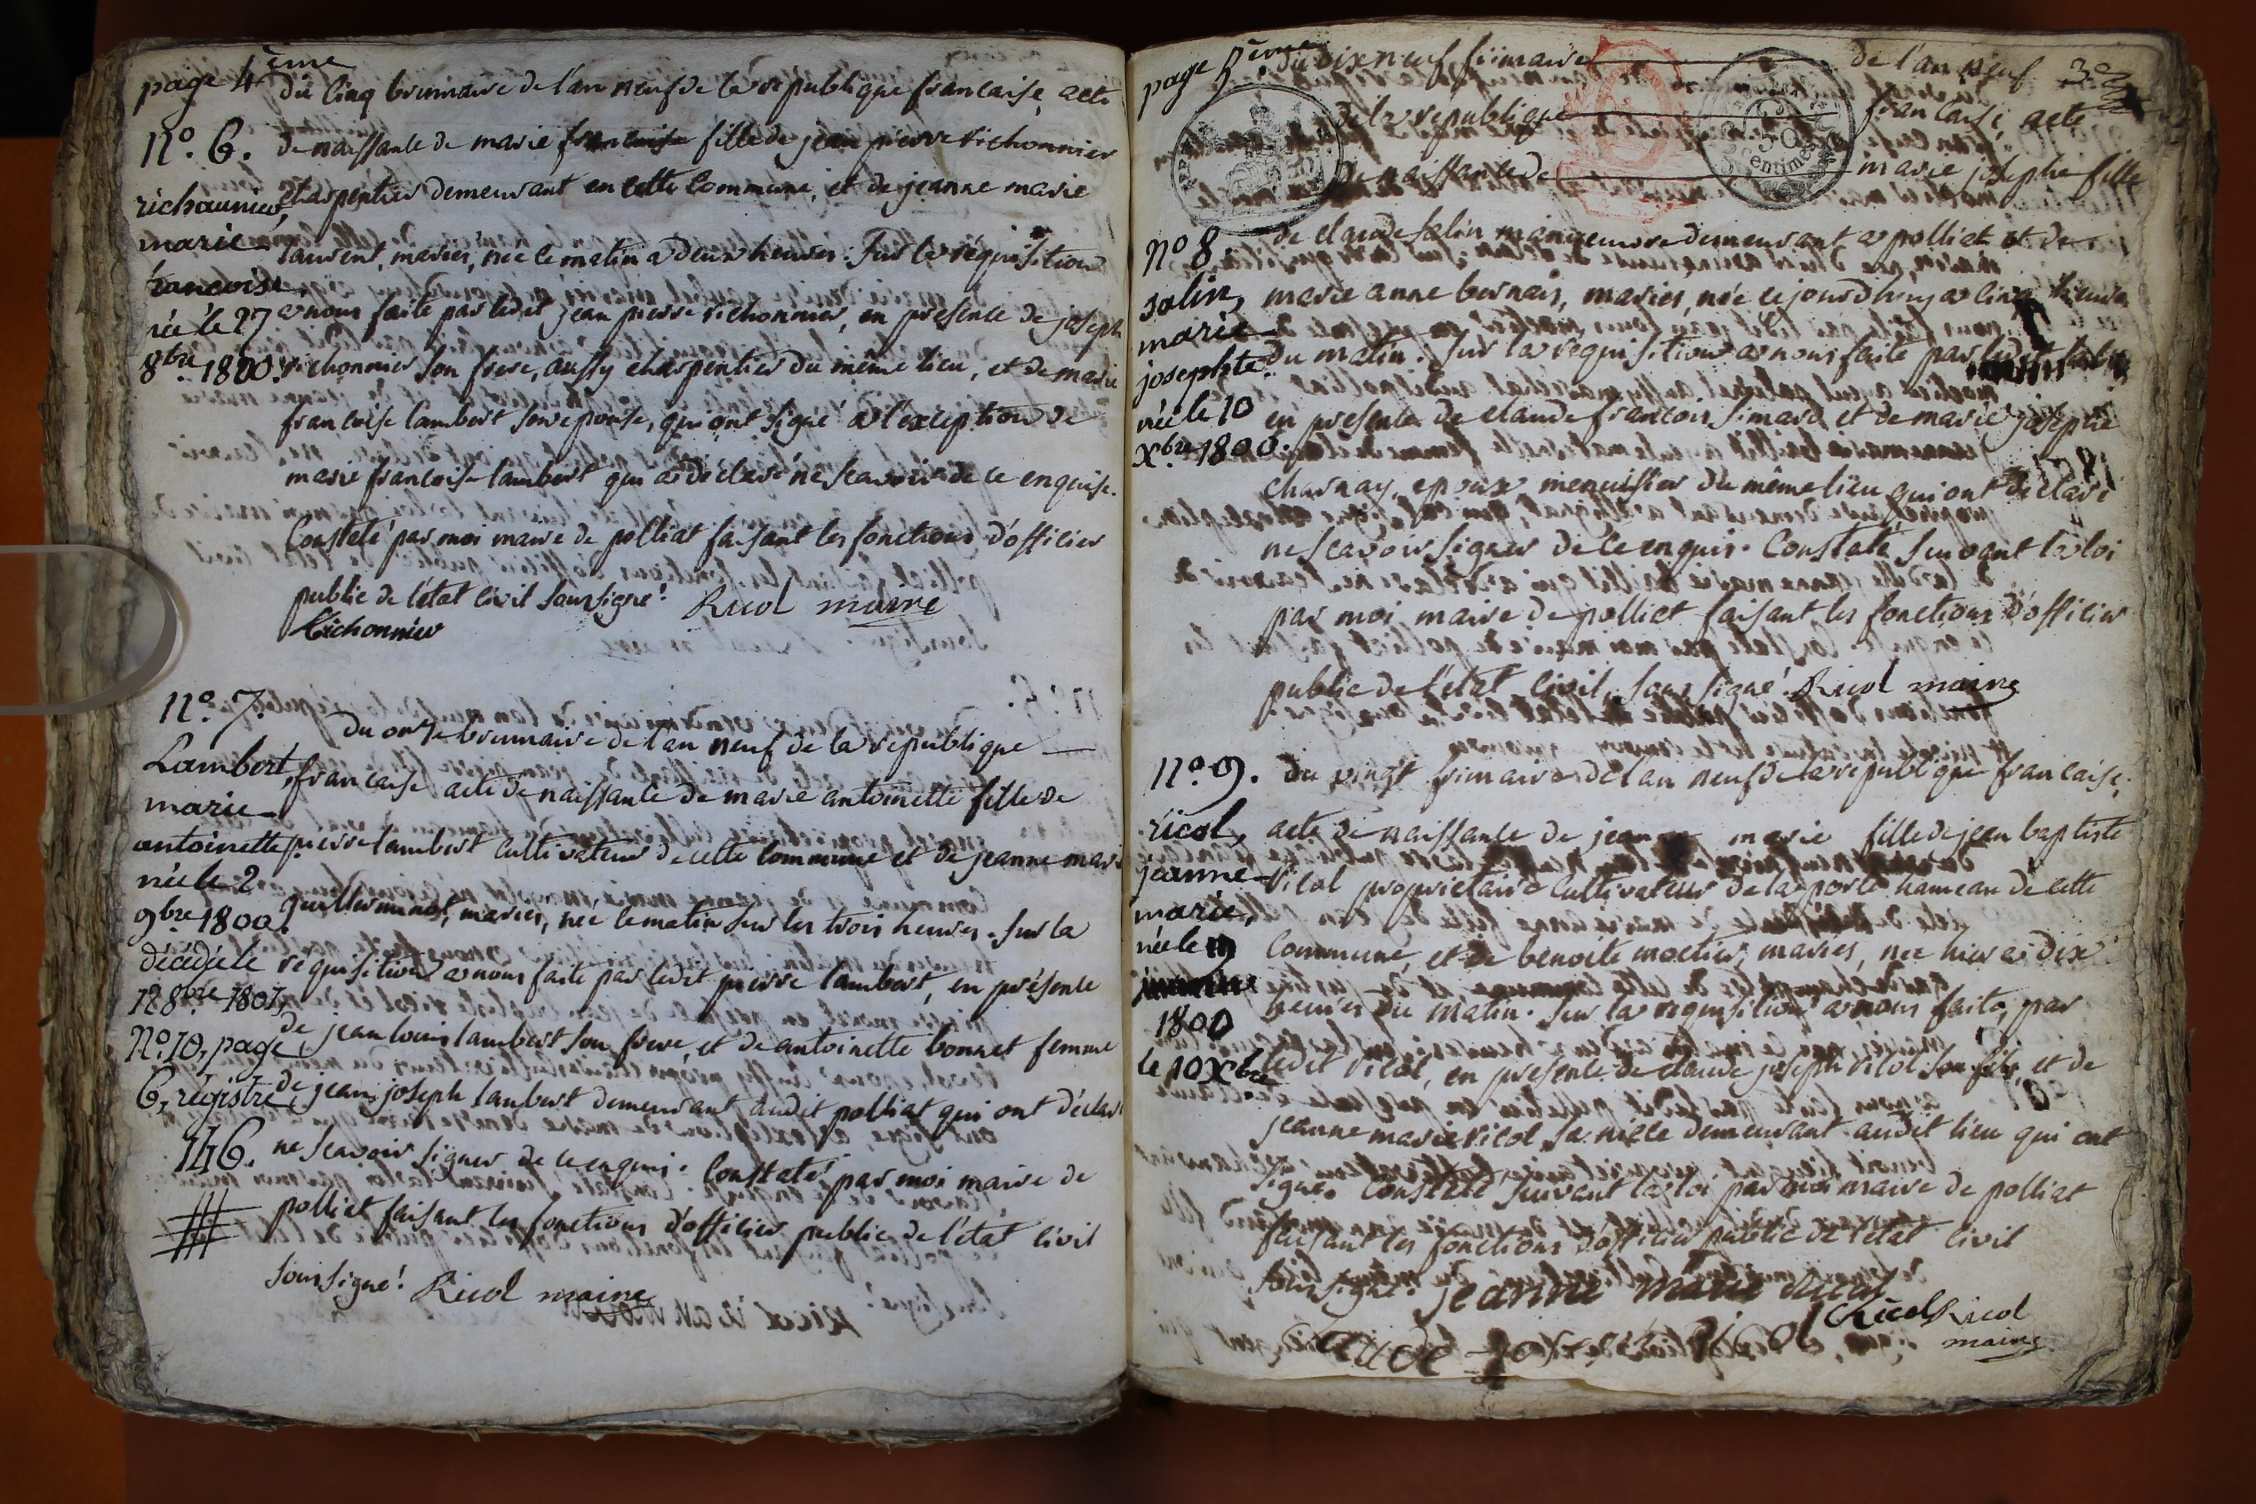 page 4ème
du cinq brumaire de l'an neuf de la république francaise, acte
N.º 6.
de naissance de marie francoise fille de jean pierre richonnier
richaunier,
charpentier demeurant en cette commune, et de jeanne marie
marie
laurent, mariés, née le matin a deux heures. Sur la réquisition
francoise,
née le 27
a nous faite par ledit jean pierre richonnier, en présence de joseph
8bre 1800.
richonnier son frere, aussy charpentier du même lieu, et de marie
francoise lambert son epouse, qui ont signé a l'exception de
marie francoise lambert qui a déclaré ne scavoir de ce enquise.
Constaté par moi maire de polliat faisant les fonctions d'officier
public de l'état civil soussigné! Ricol maire
Richonnier
N.º 7.
du onze brumaire de l'an neuf de la republique
Lambert,
francaise acte de naissance de marie antoinette fille de
marie
antoinette
pierre lambert cultivateur de cette commune et de jeanne marie
née le 2
mariés, née le matin sur les trois heures. Sur la
9bre 1800.
décédée le
réquisition a nous faite par ledit pierre lambert, en présence
12 8bre 1801,
de jean louis lambert son frere, et de antoinette bonnet femme
N.º 10, page
de jean joseph lambert demeurant audit polliat qui ont déclaré
6, régistre
146.
ne scavoir signer de ce enquis. Constaté par moi maire de
polliat faisant les fonctions d'officier public de l'état civil
soussigné! Ricol maire
page 5ème
du dix neuf frimaire de l'an neuf 3e
de la republique francaise, acte
50 centimes
de naissance de marie josephe fille
Nº 8.
de claude salin demeurant a polliat et de
salin,
marie anne bernais, mariés, née ce jourd'huy a cinq heures
marie
du matin. Sur la requisition a nous faite par ledit salin
josephte.
née le 10
en presence de claude francois simard et de marie josephe
Xbre 1800.
charnay, epoux menuisier du même lieu qui ont déclaré
ne scavoir signer de ce enquis. Constaté suivant la loi
par moi maire de polliat faisant les fonctions d'officier
public de l'état civil, soussigné! Ricol maire
N.º 9.
du vingt frimaire de l'an neuf de la republique francaise,
ricol,
acte de naissance de jeanne marie fille de jean baptiste
jeanne
Ricol proprietaire cultivateur de laporte hameau de cette
marie,
née le
commune, et de benoite moetier, mariés, née hier a dix
heures du matin. Sur la requisition a nous faite, par
1800
le 10 Xbre
ledit Ricol, en presence de claude joseph ricol son fils, et de
jeanne marie ricol sa niece demeurant audit lieu qui ont
signé. Constaté suivant la loi par moi maire de polliat
faisant les fonctions d'officier public de l'état civil
soussigné. jeanne marie ricol
Ricol Ricol
maire